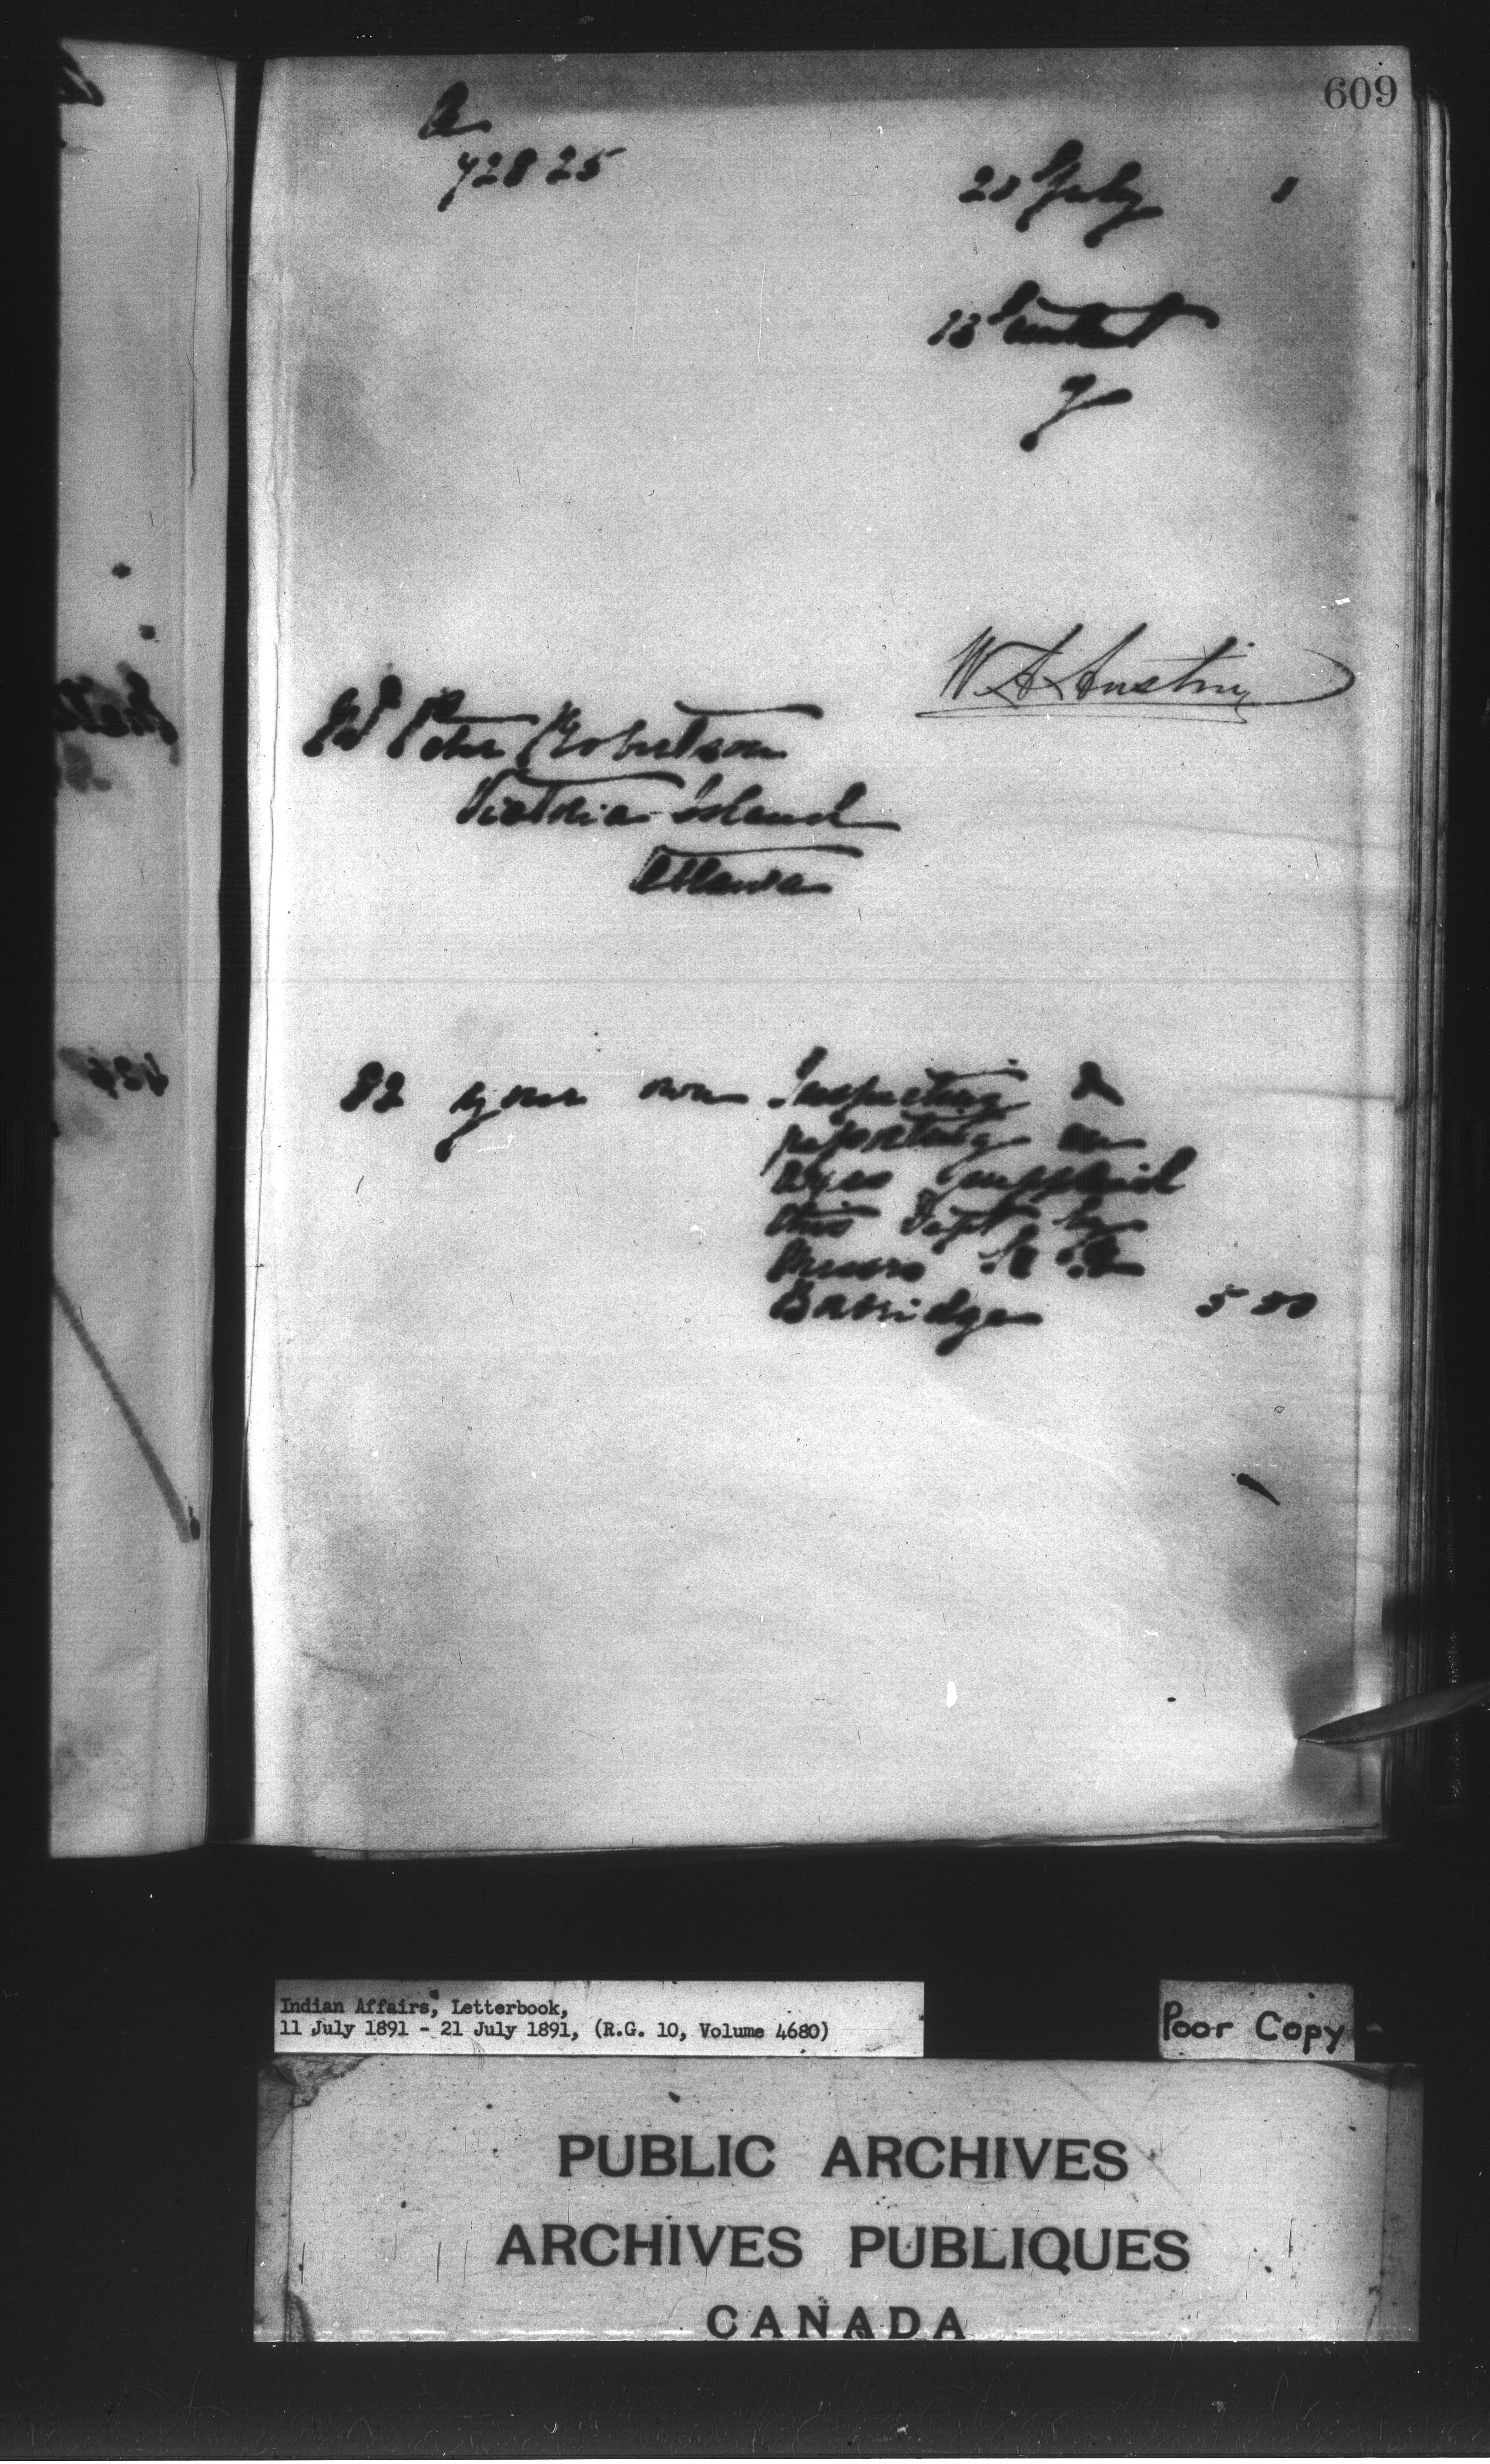 609
A
72825
20 July 1
13 Instant
W A Austin
Mr Peter Robertson
Victoria Island
Ottawa
82 your own Inspecting &
reporting on
axes supplied
this Dept by
Messrs
5 00
Indian Affairs, Letterbook,
11 July 1891 - 21 July 1891, (R.G. 10, Volume 4680)
Poor Copy
PUBLIC ARCHIVES
ARCHIVES PUBLIQUES
CANADA